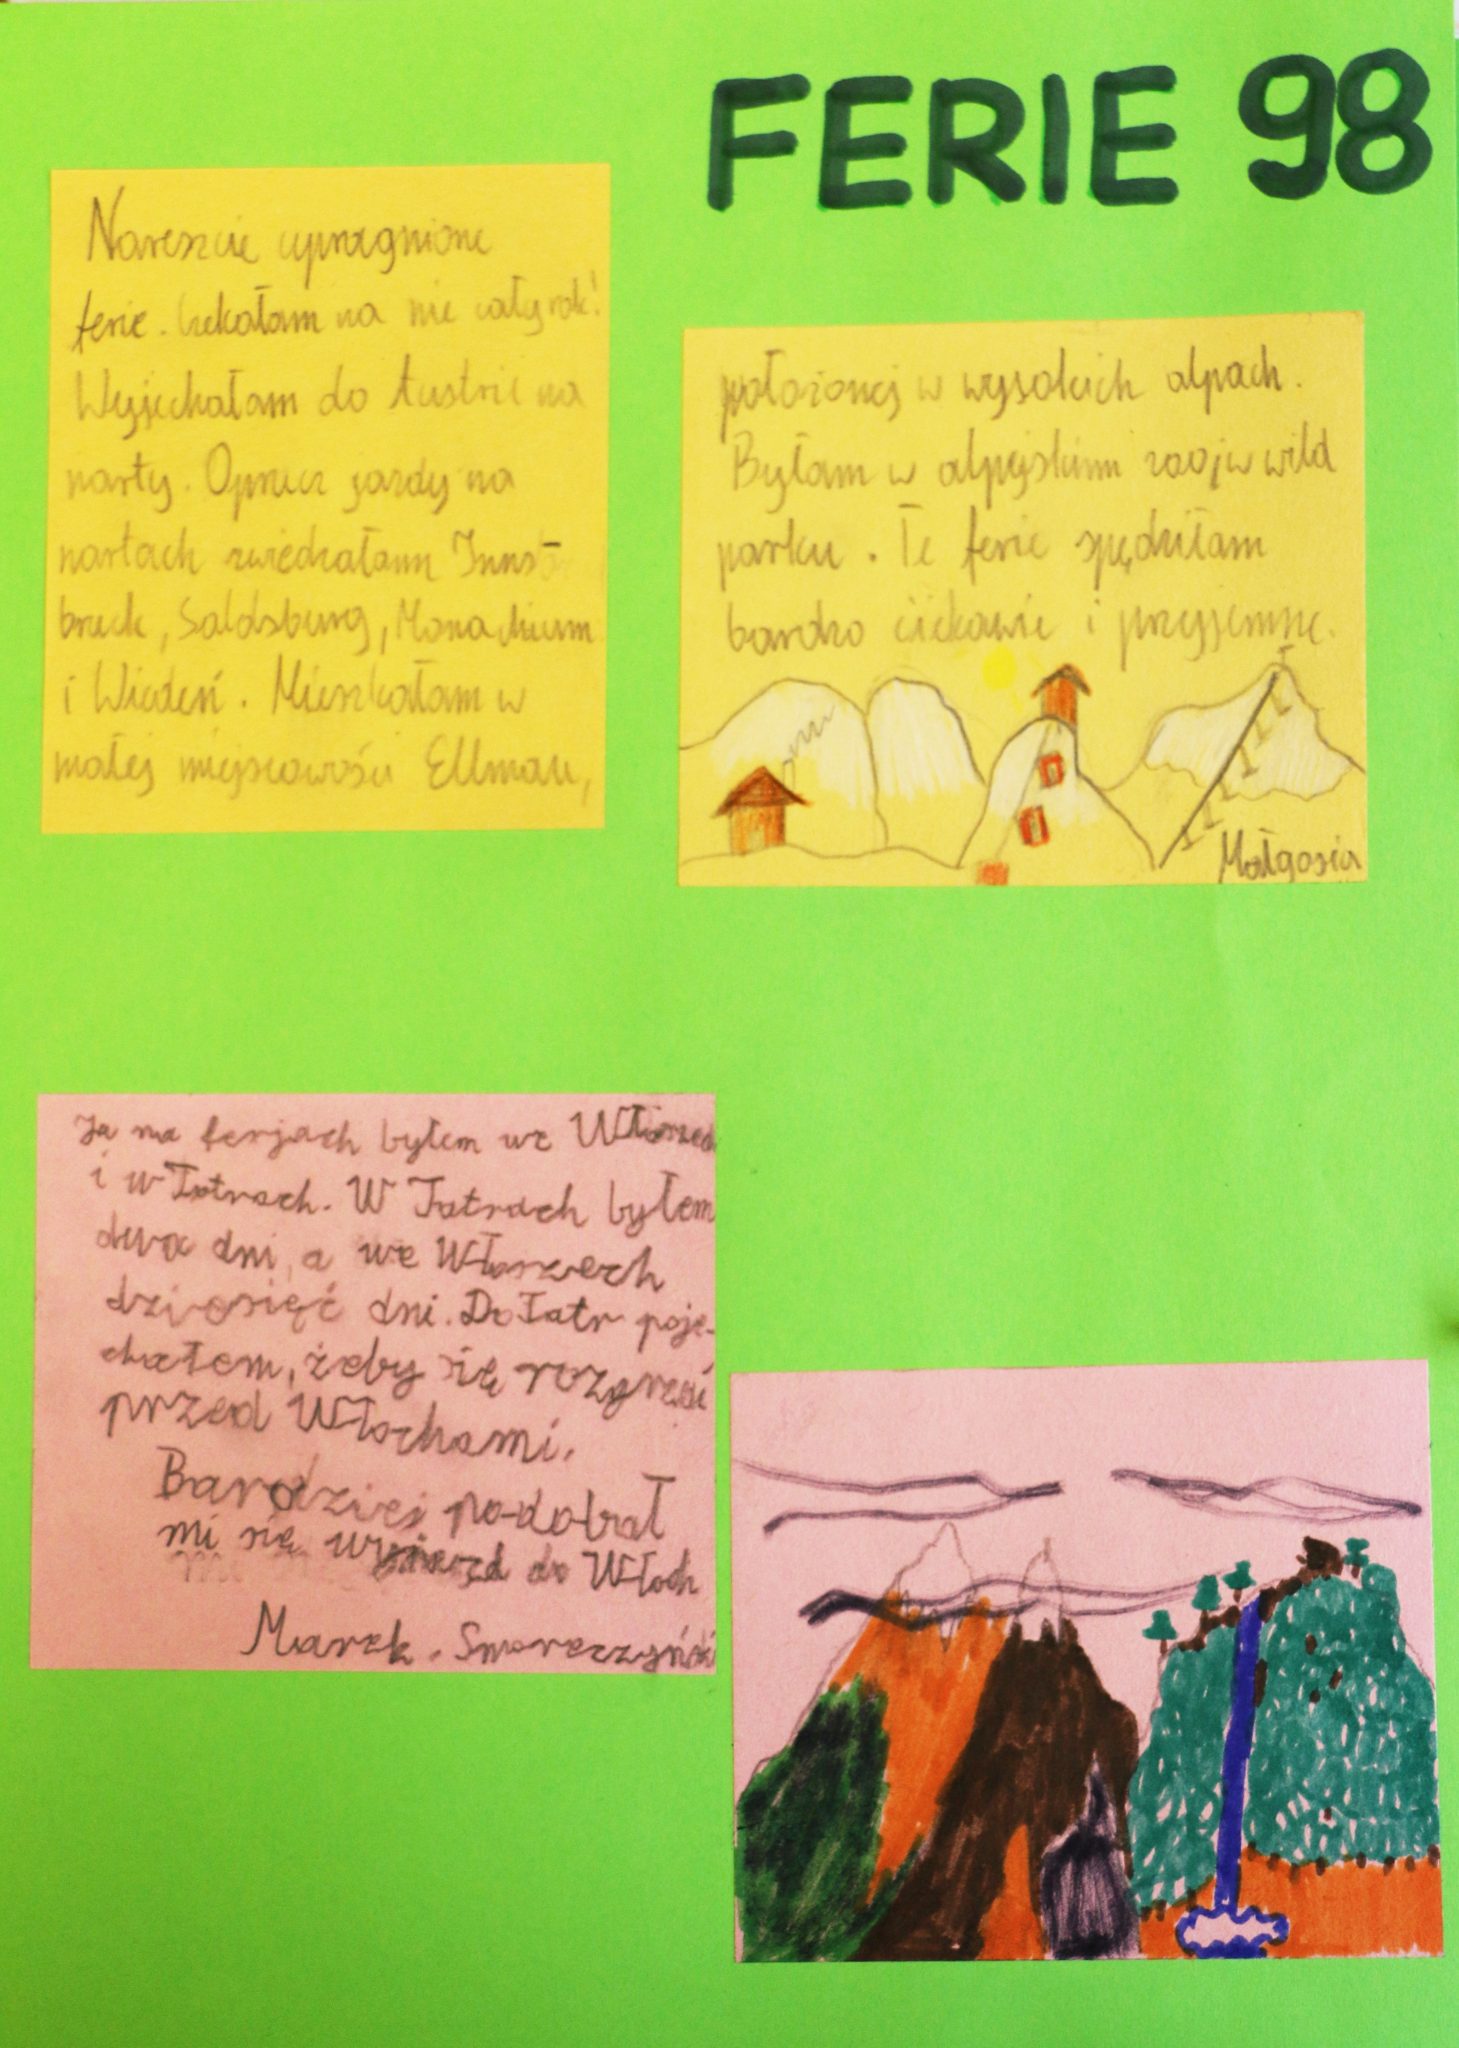 FERIE 98
Nareszcie upragnione
ferie. Czekałam na nie cały rok!
Wyjechałam do Austrii na
narty. Oprócz jazdy na
nartach zwiedzałam Inns
bruck, Saldsburg, Monachium
i Wiedeń. Mieszkałam w
małej miejscowości Ellmau,
położonej w wysokich alpach.
Byłam w alpejskim zooj w wild
parku. Te ferie spędziłam
bardzo ciekawie i przyjemnie.
Małgosia
Ja na ferjach byłem we Włoszech
i w Tatrach. W Tatrach byłem
dwa dni, a we Włoszech
dziesięć dni. Do Tatr poje-
chałem, żeby się rozgrzać
przed Włochami.
Bardziej podobał
mi się wyjazd do Włoch
Marek